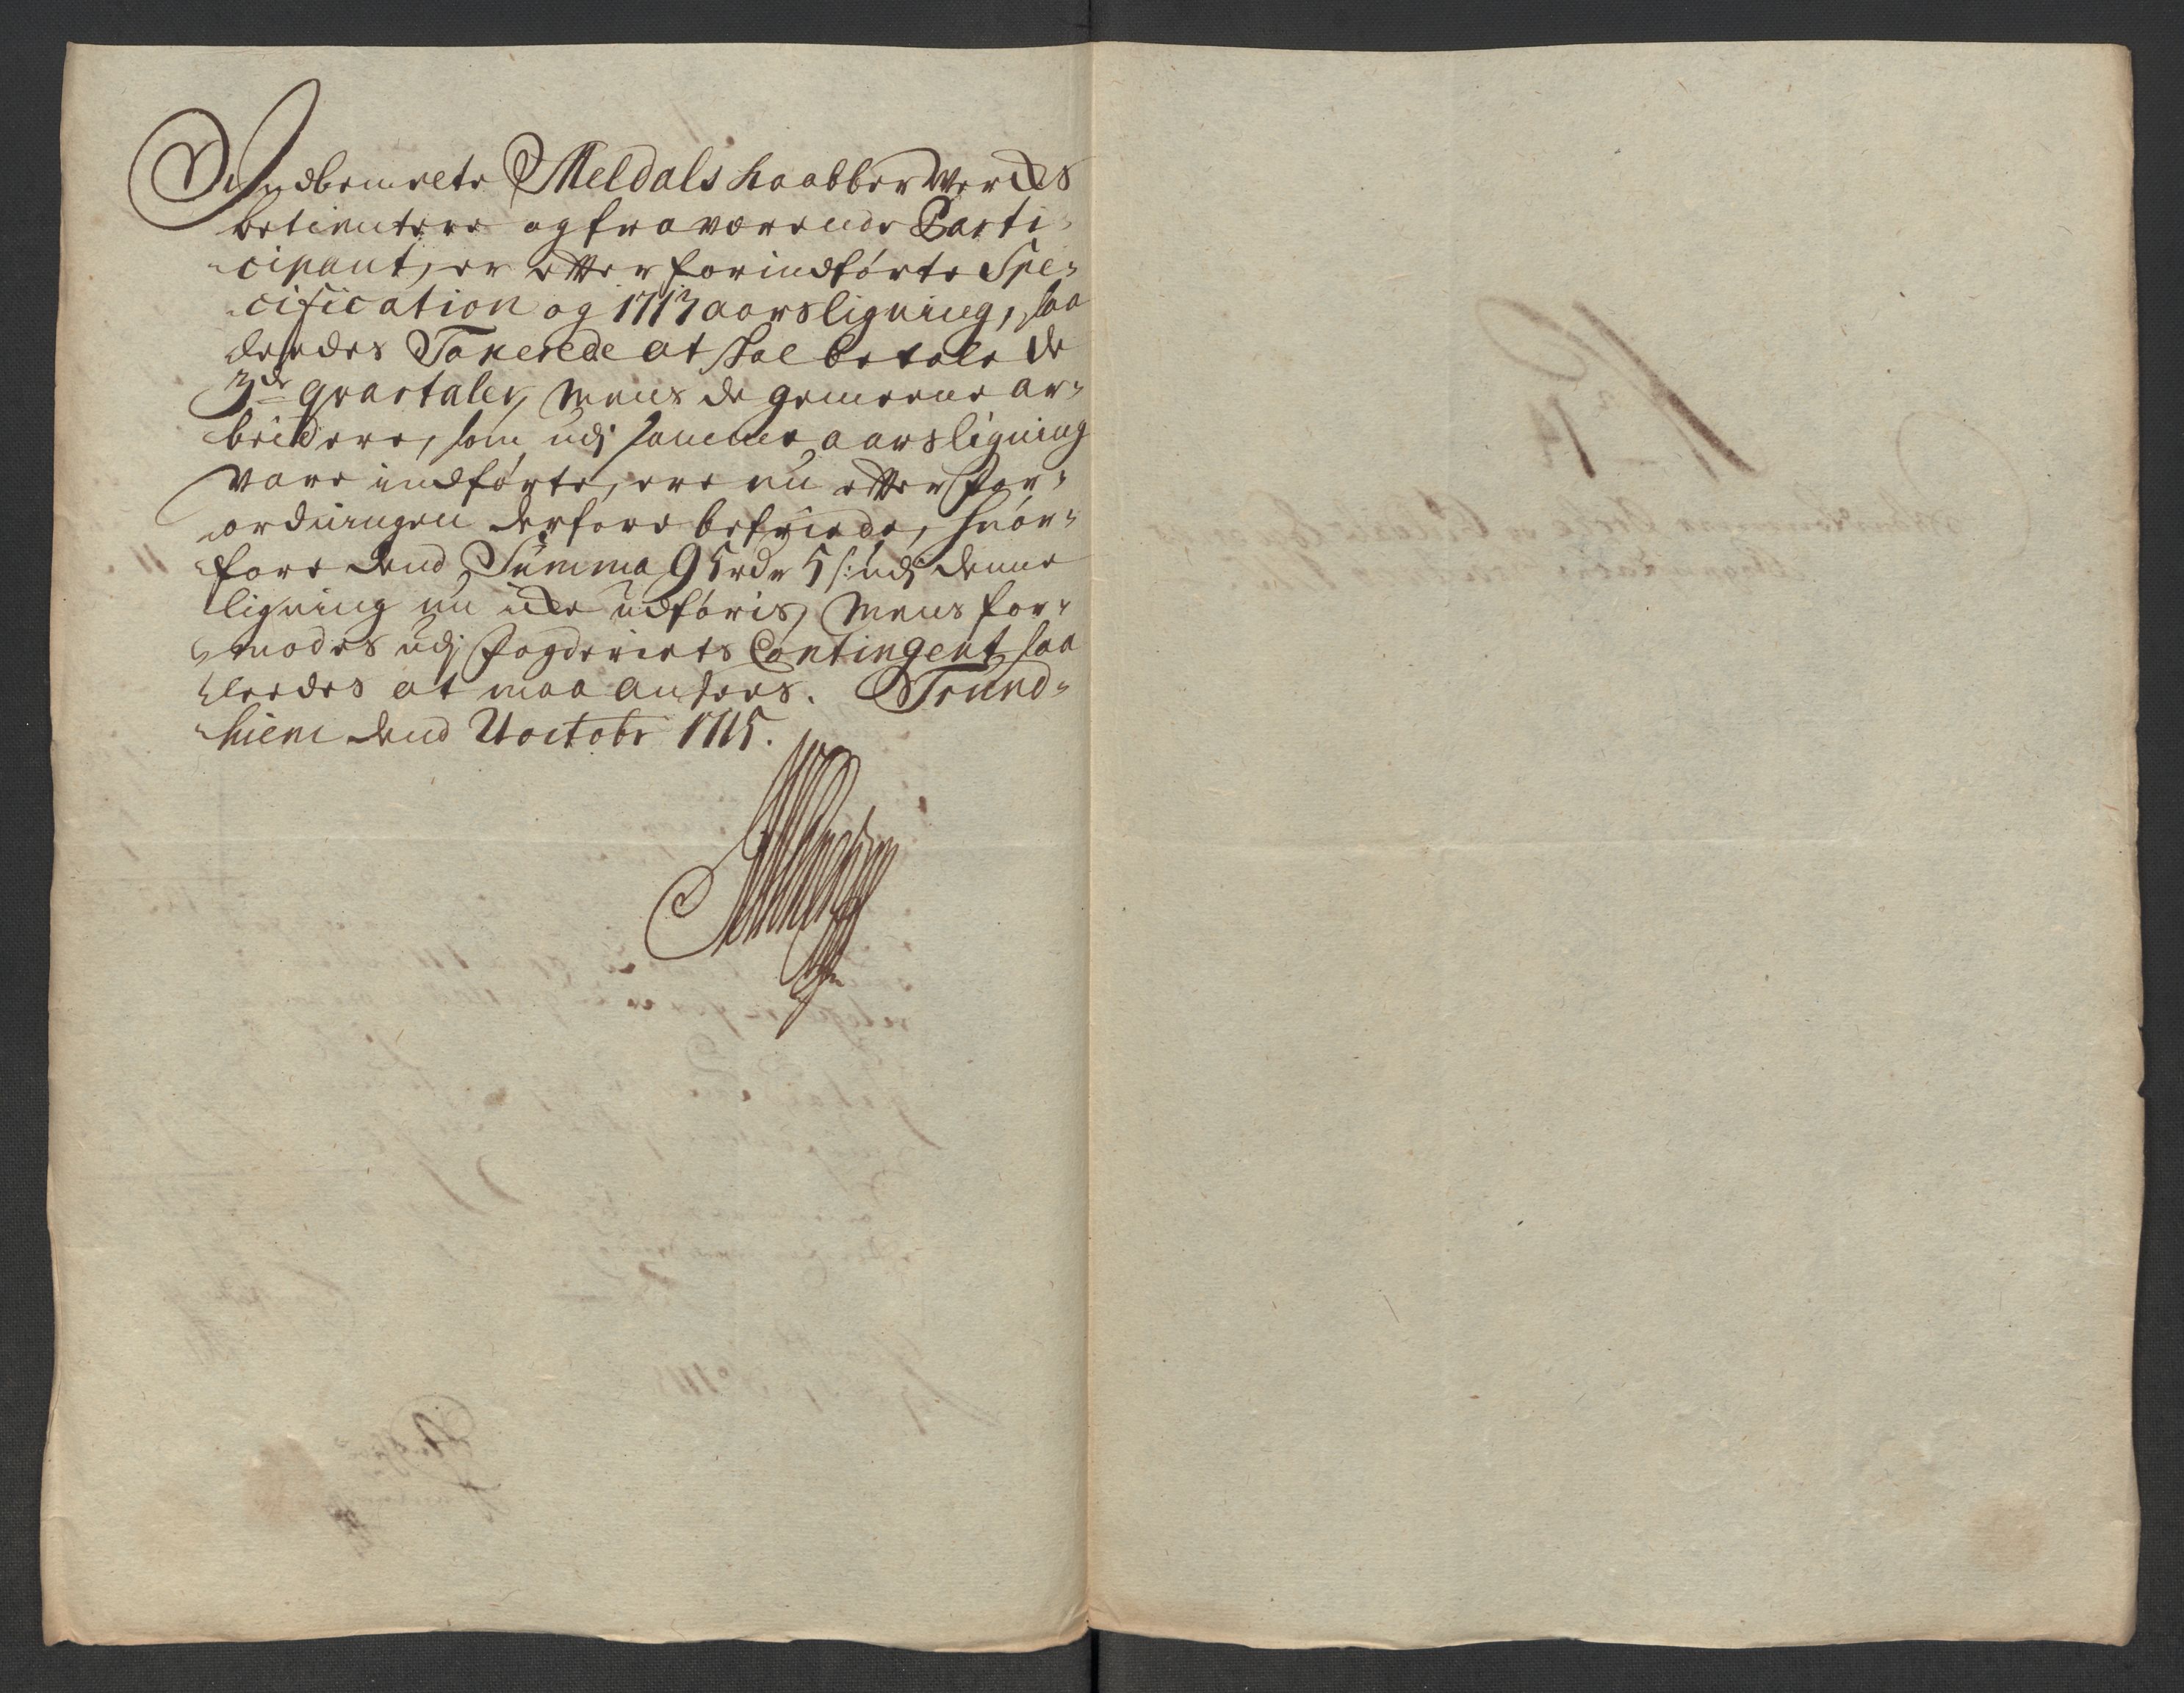 Indbemelte Meldals Kaabber Werckes
betientere og fraværende Parti-
cipant, er effter forindførte Spe-
cification og 1713 aars ligning, saa
ledes Taxerede at skal betale de
3de qvartaler, mens de gemeene ar-
beidere, som udj samme aars ligning
vare indførte, ere nu effter For-
ordningen derfore befriede, hvor-
fore dend Summa 95 rdr 5 s: udj denne
ligning nu icke udføris, mens for-
modes udj Fogderiets Contingent saa
ledes at maa ansees. Trund-
hiem dend octobr 1715.